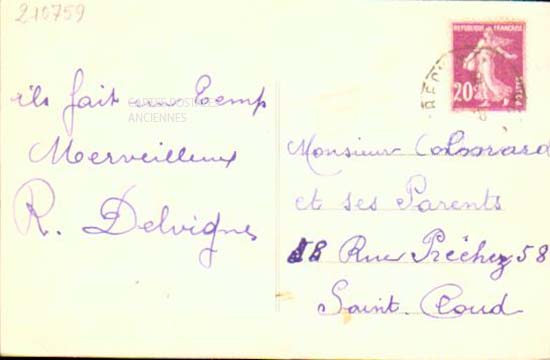 210759
ils fait un Temp
Merveilleux
R. Delvigne
CARTES POSTALES
ANCIENNES
REPUBLIQUE FRANÇAISE
20
Monsieur
et ses Parents
58 Rue 58
Saint. Cloud